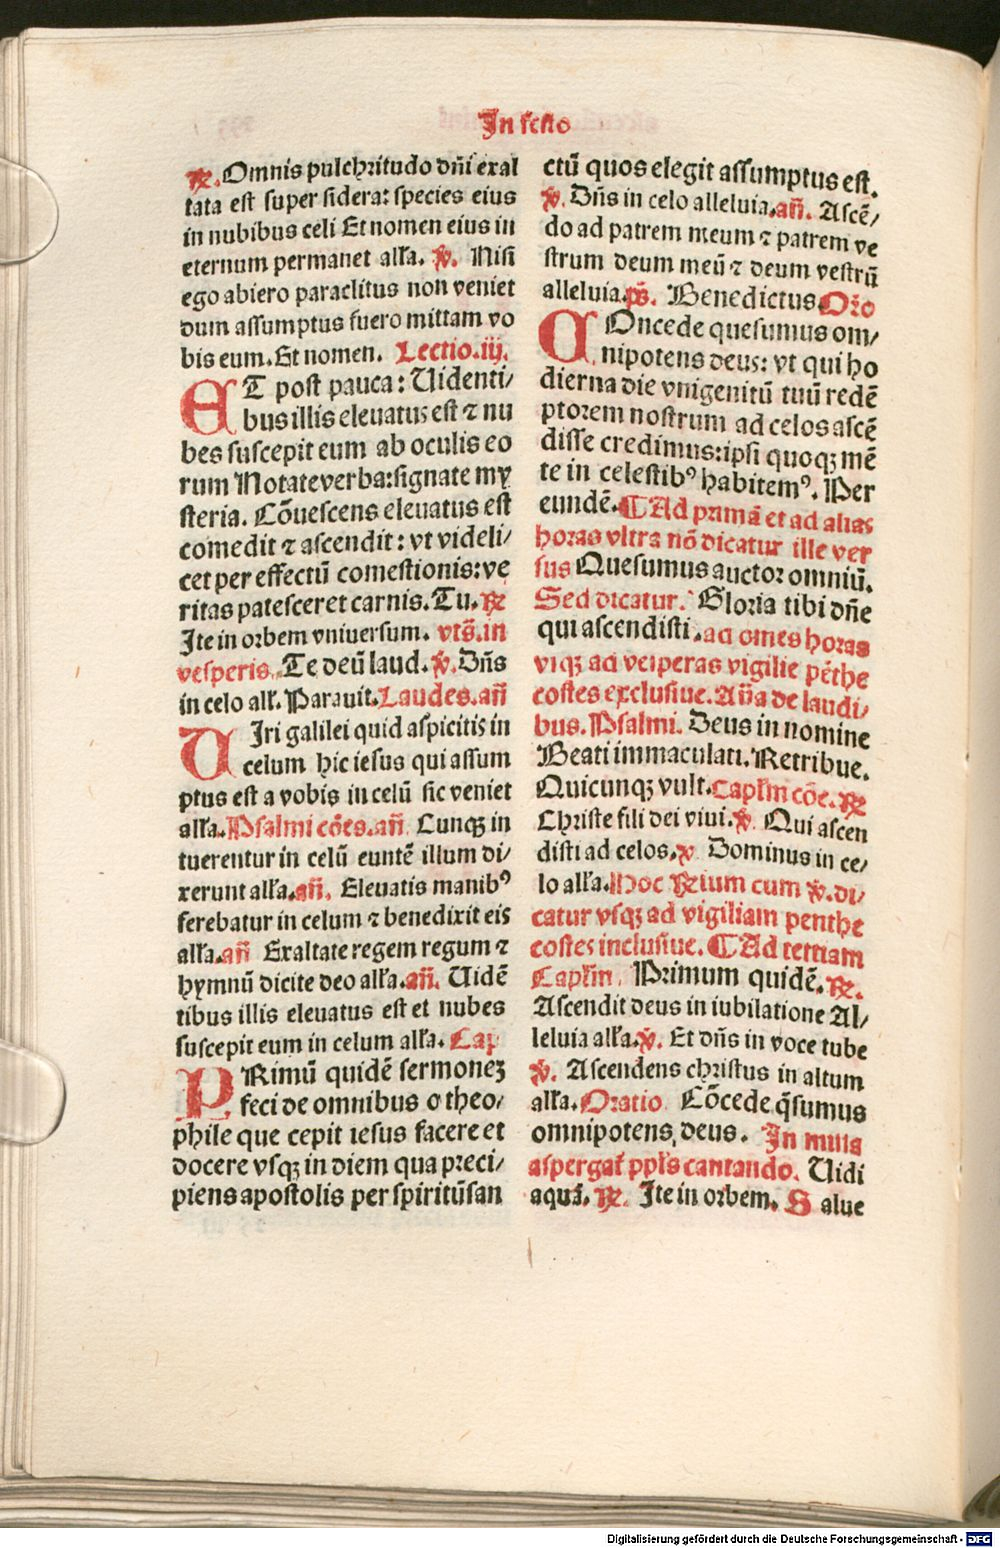 In festo
℟. Omnis pulchritudo dñi exal
tata est super sidera: species eius
in nubibus celi Et nomen eius in
eternum permanet alľa. ℣. Nisi
ego abiero paraclitus non veniet
dum assumptus fuero mittam vo
bis eum. Et nomen. Lectio.iij.
ET post pauca: Uidenti/
bus illis eleuatus est ⁊ nu
bes suscepit eum ab oculis eo
rum Notate verba: signate my
steria. Cōuescens eleuatus est
comedit ⁊ ascendit: vt videli/
cet per effectū comestionis: ve
ritas patesceret carnis. Tu. ℟
Ite in orbem vniuersum. vts̄. in
vesperis. Te deū laud. ℣. Dñs
in celo alľ. Parauit. Laudes. añ
UIri galilei quid aspicitis in
celum hic iesus qui assum
ptus est a vobis in celū sic veniet
alľa. Psalmi cōes. añ. Cunqꝫ in
tuerentur in celū euntē illum di/
xerunt alľa. añ. Eleuatis manibꝰ
ferebatur in celum ⁊ benedixit eis
alľa. añ Exaltate regem regum ⁊
hymnū dicite deo alľa. añ. Uidē
tibus illis eleuatus est et nubes
suscepit eum in celum alľa. Cap
PRimū quidē sermonez
feci de omnibus o theo/
phile que cepit iesus facere et
docere vsqꝫ in diem qua preci/
piens apostolis per spiritū san
ctū quos elegit assumptus est.
℣. Dñs in celo alleluia. añ. Ascē/
do ad patrem meum ⁊ patrem ve
strum deum meū ⁊ deum vestrū
alleluia. ps̄. Benedictus. Oro
COncede quesumus om/
nipotens deus: vt qui ho
dierna die vnigenitū tuū redē
ptorem nostrum ad celos ascē
disse credimus: ipsi quoqꝫ mē
te in celestibꝰ habitemꝰ. Per
eundē. ¶ Ad primā et ad alias
horas vltra nō dicatur ille ver
sus Quesumus auctor omniū.
Sed dicatur. Gloria tibi dñe
qui ascendisti. ad omēs horas
vsqꝫ ad vesperas vigilie pēthe
costes exclusiue. Aña de laudi/
bus. Psalmi. Deus in nomine
Beati immaculati. Retribue.
Quicunqꝫ vult. Capľm cōe. ℟
Christe fili dei viui. ℣. Qui ascen
disti ad celos. ℣ Dominus in ce/
lo alľa. Hoc ℟rium cum ℣. di/
catur vsqꝫ ad vigiliam penthe
costes inclusiue. ¶ Ad tertiam
Capľm. Primum quidē. ℟.
Ascendit deus in iubilatione Al/
leluia alľa. ℣. Et dñs in voce tube
℣. Ascendens christus in altum
alľa. Oratio Cōcede q̄sumus
omnipotens deus. In missa
aspergať ppľs cantando. Uidi
aquā. ℟. Ite in orbem. Salue
Digitalisierung gefördert durch die Deutsche Forschungsgemeinschaft - DFG